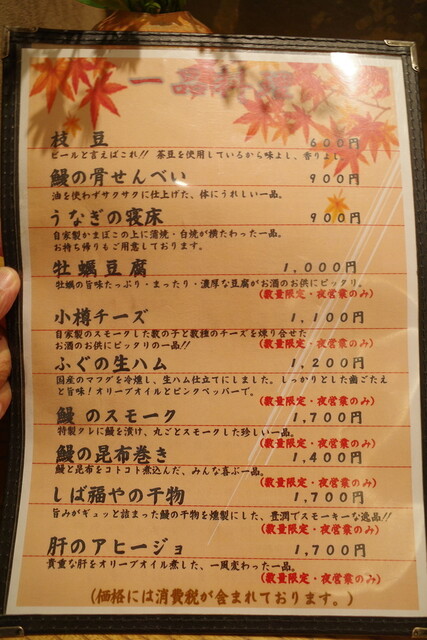 一品料理
枝 豆 600円
ビールと言えばこれ!! 茶豆を使用しているから味よし、香りよし。
鰻の骨せんべい 900円
油を使わずサクサクに仕上げた、体にうれしい一品。
うなぎの寝床 900円
自家製かまぼこの上に蒲焼・白焼が横たわった一品。
お持ち帰りもご用意しております。
牡蠣豆腐 1,000円
牡蠣の旨味たっぷり・まったり・濃厚な豆腐がお酒のお供にピッタリ。
(数量限定・夜営業のみ)
小樽チーズ 1,100円
自家製のスモークした数の子と数種のチーズを練り合せた
お酒のお供にピッタリの一品!! (数量限定・夜営業のみ)
ふぐの生ハム 1,200円
国産のマフグを冷燻し、生ハム仕立てにしました。しっかりとした歯ごたえ
と旨味!オリーブオイルとピンクペッパーで。 (数量限定・夜営業のみ)
鰻 のスモーク 1,700円
特製タレに鰻を漬け、丸ごとスモークした珍しい一品。
(数量限定・夜営業のみ)
鰻の昆布巻き 1,400円
鰻と昆布をコトコト煮込んだ、みんな喜ぶ一品。
(数量限定・夜営業のみ)
しば福やの干物 1,700円
旨みがギュッと詰まった鰻の干物を燻製にした、豊潤でスモーキーな逸品!!
(数量限定・夜営業のみ)
肝のアヒージョ 1,700円
貴重な肝をオリーブオイル煮した、一風変わった一品。
(数量限定・夜営業のみ)
(価格には消費税が含まれております。)